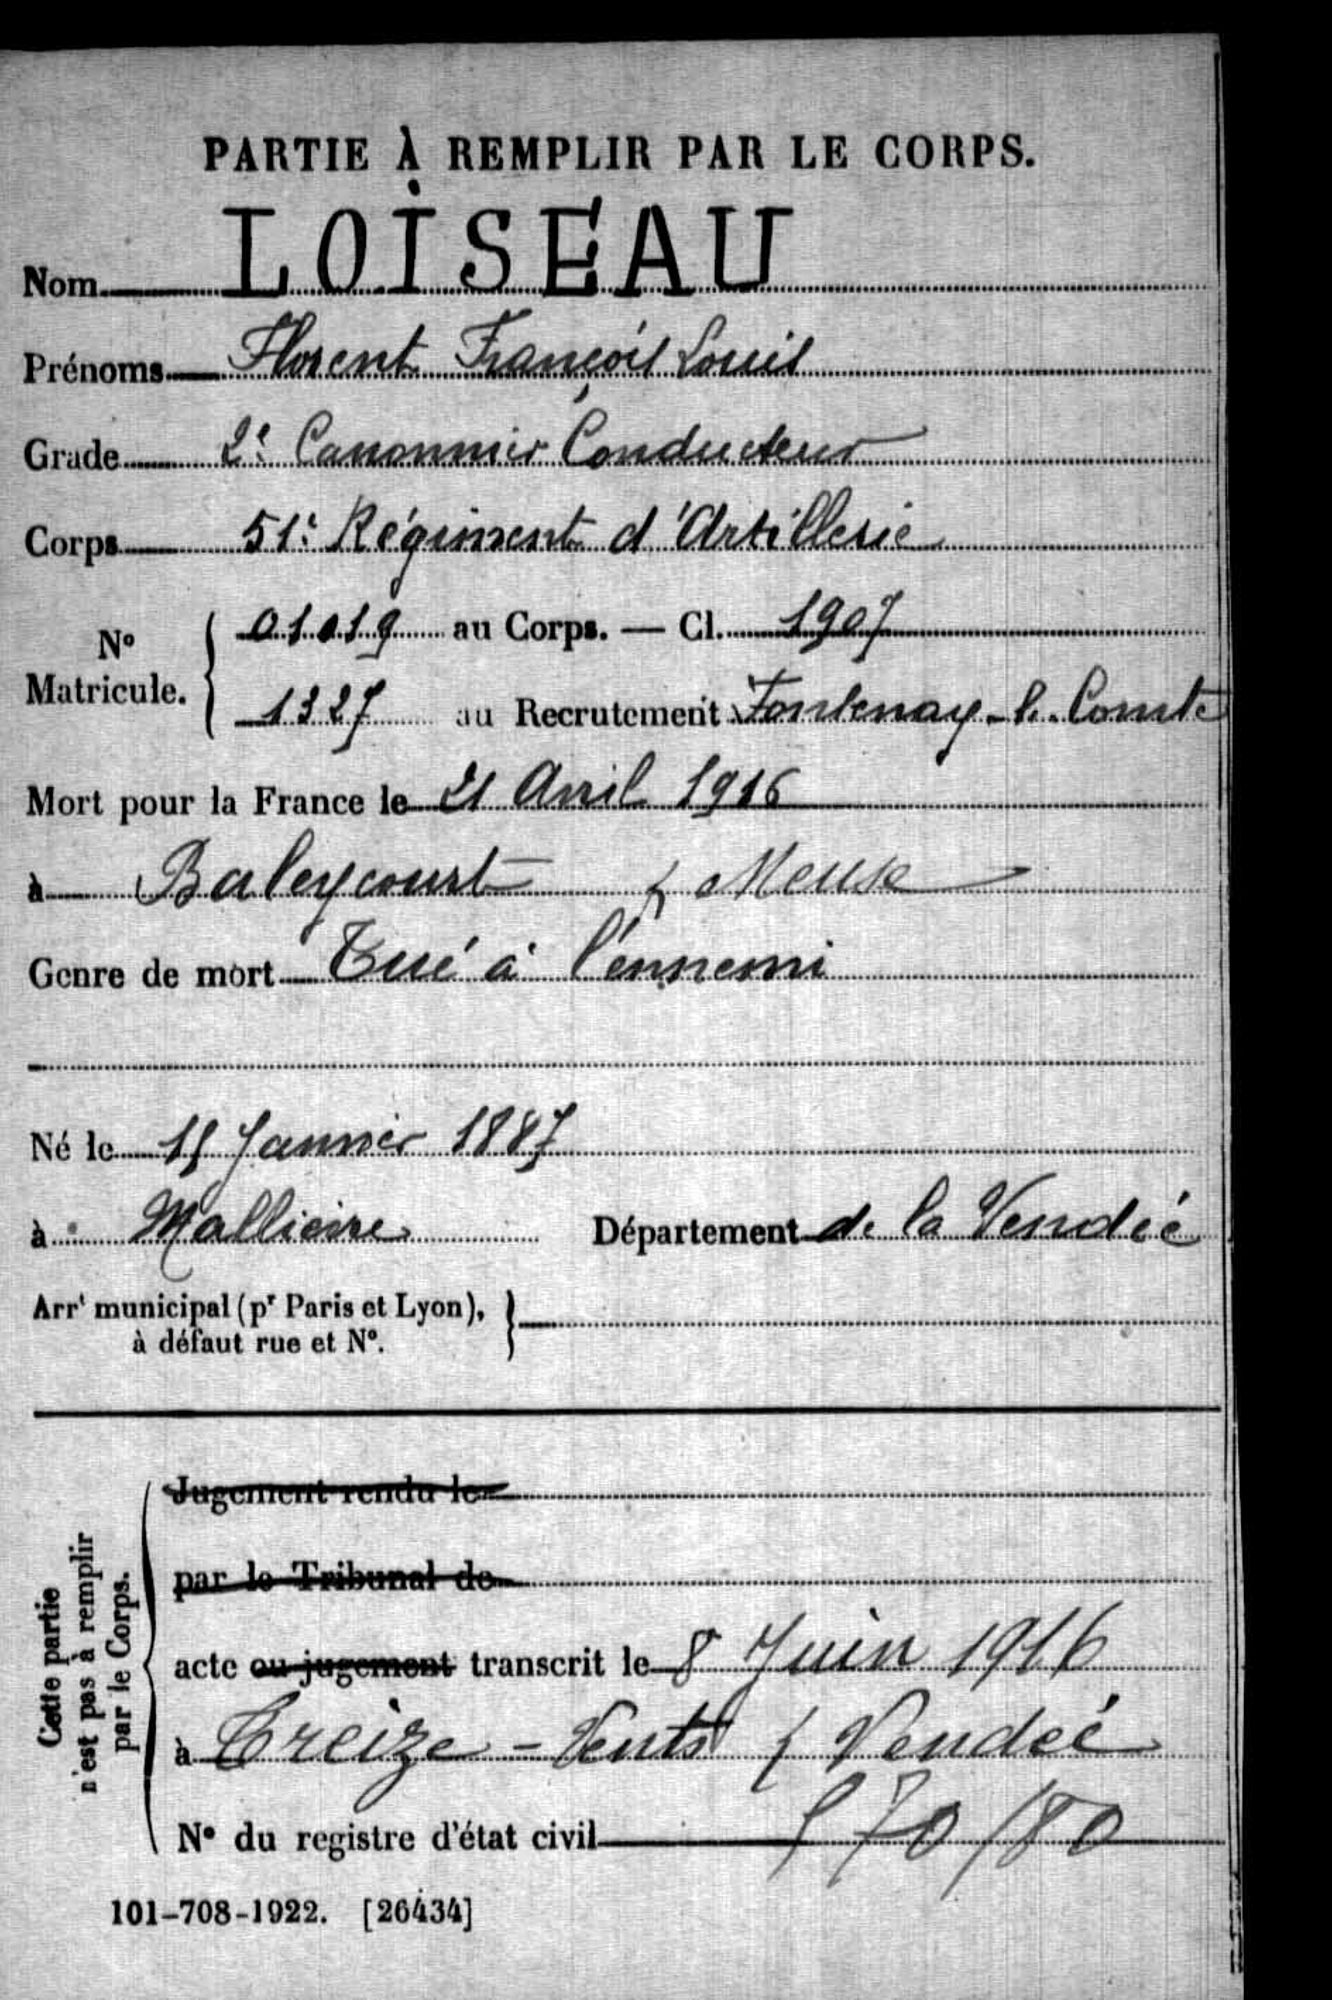 PARTIE À REMPLIR PAR LE CORPS.
Nom LOISEAU
Prénoms Florent François Louis
Grade 2e Canonnier Conducteur
Corps 51e Régiment d'Artillerie
N° Matricule. { 01019 au Corps. — Cl. 1907
1327 au Recrutement Fontenay-le-Comte
Mort pour la France le 21 Avril 1916
à Baleycourt (Meuse
Genre de mort Tué à l'ennemi
Né le Janvier 1887
à Mallièvre Département de la Vendée
Arrt municipal (pr Paris et Lyon),
à défaut rue et N°.
Cette partie
n'est pas à remplir
par le Corps.
Jugement rendu le
par le Tribunal de
acte ou jugement transcrit le 8 Juin 1916
à Treize-Vents (Vendée
N° du registre d'état civil
101-708-1922. [26434]